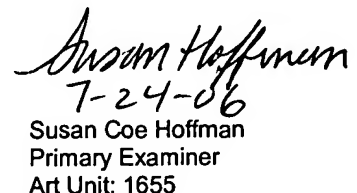 Susan Hoffman
7-24-06
Susan Coe Hoffman
Primary Examiner
Art Unit: 1655